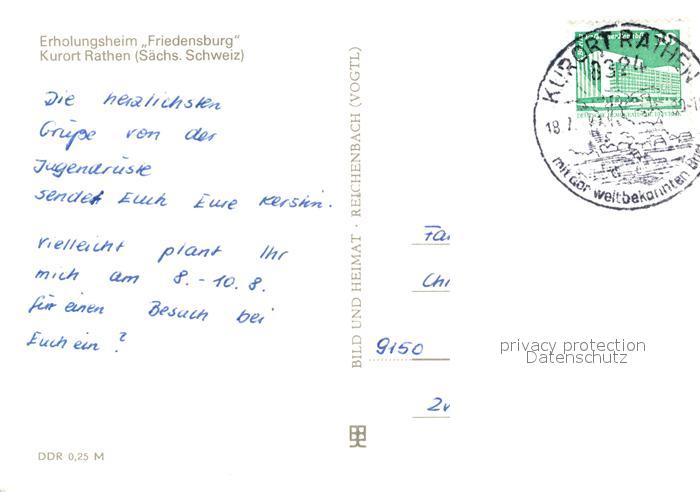 Erholungsheim „Friedensburg“
Kurort Rathen (Sächs. Schweiz)
Die herzlichsten
Grüße von der
Jugendrüste
sendet Euch Eure Kerstin.
Vielleicht plant Ihr
mich am 8. - 10. 8.
für einen Besuch bei
Euch ein?
DDR 0,25 M
BILD UND HEIMAT · REICHENBACH (VOGTL)
KURORT RATHEN
8324
18.7.
mit der weltbekannten
Fa
Chi
9150
Zw
privacy protection
Datenschutz